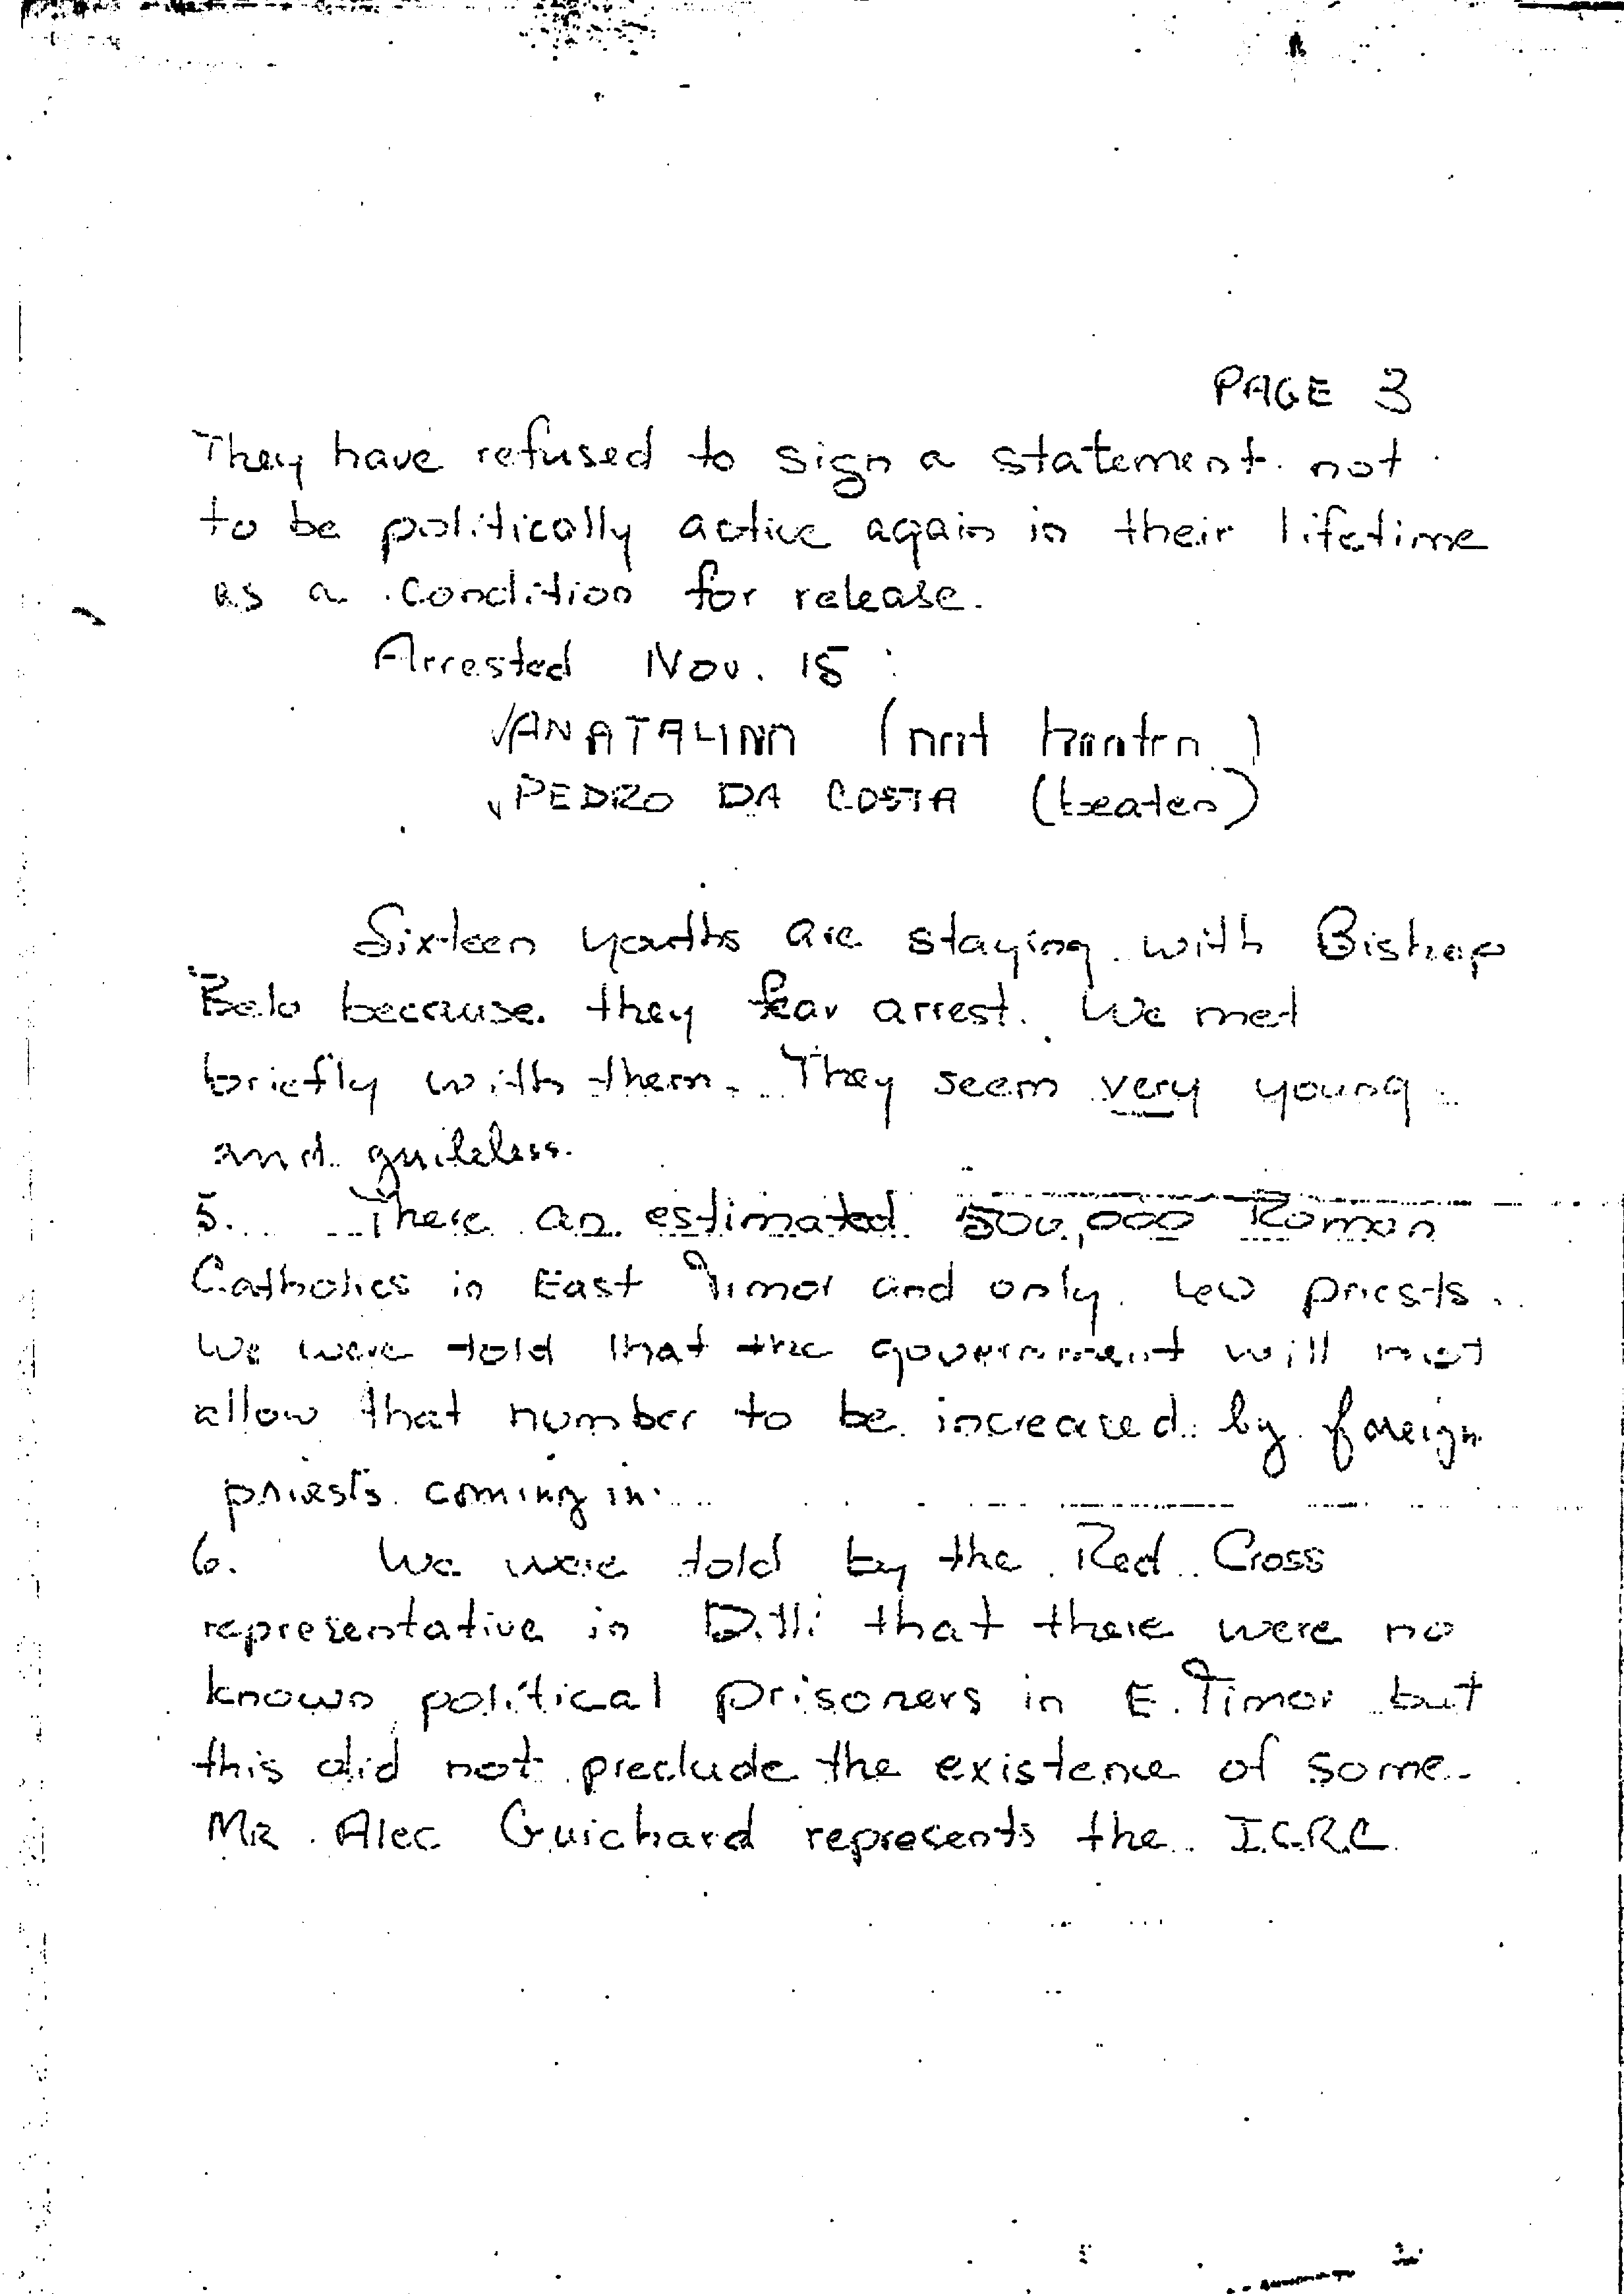 PAGE 3
They have refused to sign a statement not
to be politically active again in their lifetime
as a condition for release.
Arrested Nov. 15 :
√ANATALINO (not beaten)
√PEDRO DA COSTA (beaten)
Sixteen youths are staying with Bishop
Belo because they fear arrest. We met
briefly with them. They seem very young
and guileless.
5. There an estimated 500,000 Roman
Catholics in East Timor and only few priests.
We were told that the government will not
allow that number to be increased by foreign
priests coming in.
6. We were told by the Red Cross
representative in Dilli that there were no
known political prisoners in E. Timor but
this did not preclude the existence of some.
MR. Alec Guichard represents the I.C.R.C